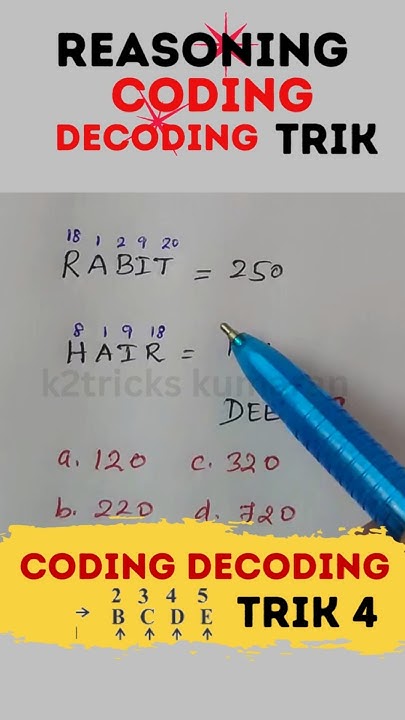 REASONING
CODING
DECODING TRIK
18 1 2 9 20
RABIT = 250
8 1 9 18
HAIR =
k2tricks
DEE
a. 120 c. 320
b. 220 d. 720
CODING DECODING
2 3 4 5
→ B C D E TRIK 4
↑ ↑ ↑ ↑